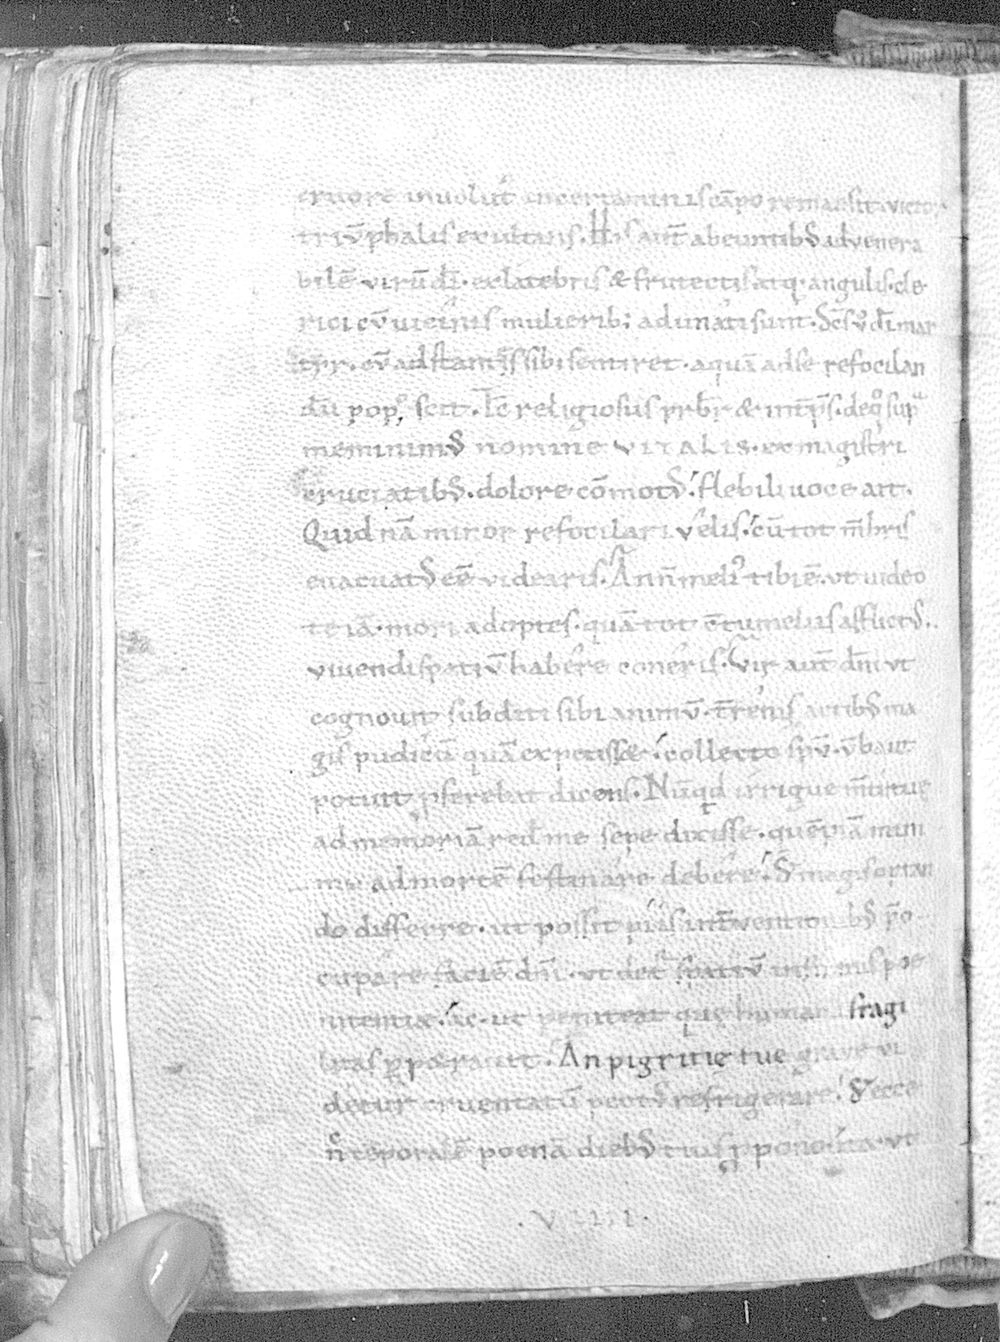 cruore inuolut' in certaminis cāpo remansit victor
triv̄phalis exultans. His aut̄ abeuntibꝰ ad venera
bilē virū dī. ex latebris & frutectis atq; angulis. cle
rici cv̄ uicinis mulierib; adunati sunt. Sc̄s v͛ dī mar
tyr. cv̄ adstantes sibi sentiret. aquā ad se refocilan
dū poposcit. Tc̄ religiosus prb̄r & int̄p̄s. de quo sup
meminimꝰ nomine VITALIS. ex magistri
cruciatibꝰ. dolore cōmotꝰ. flebili uoce ait.
Quidnā miror refocilari velis. cū tot mēbris
euacuatꝰ ēē videaris. An n̄ meliꝰ tibi ē. ut uideo
te iā mori adoptes. quā tot cōtumeliis afflictꝰ.
viuendi spativ̄ habere coneris. Vir aut̄ dn̄i ut
cognouit subditi sibi animv̄. t̄renis artibꝰ ma
gis pudicū quā expetisse. collecto spū. v̄ba ut
potuit pferebat dicens. Nūqd irrigue m̄titus
ad memoriā red me sepe dixisse. quēpiā nimi
me ad mortē festinare debere. Sꝫ magis optan
do differre. ut possit piis int̄ventionibꝰ p̄o
cupare faciē dn̄i. ut det spativ̄ poe
nitentiae. ac. ut peniteat que humana fragi
litas perpetrauit. An pigritie tue graue vi
detur cruentatū pectꝰ refrigerare. Sꝫ ecce
n̄ teporalē poenā diebꝰ tuis ppono. ita. ut
. V IIII .